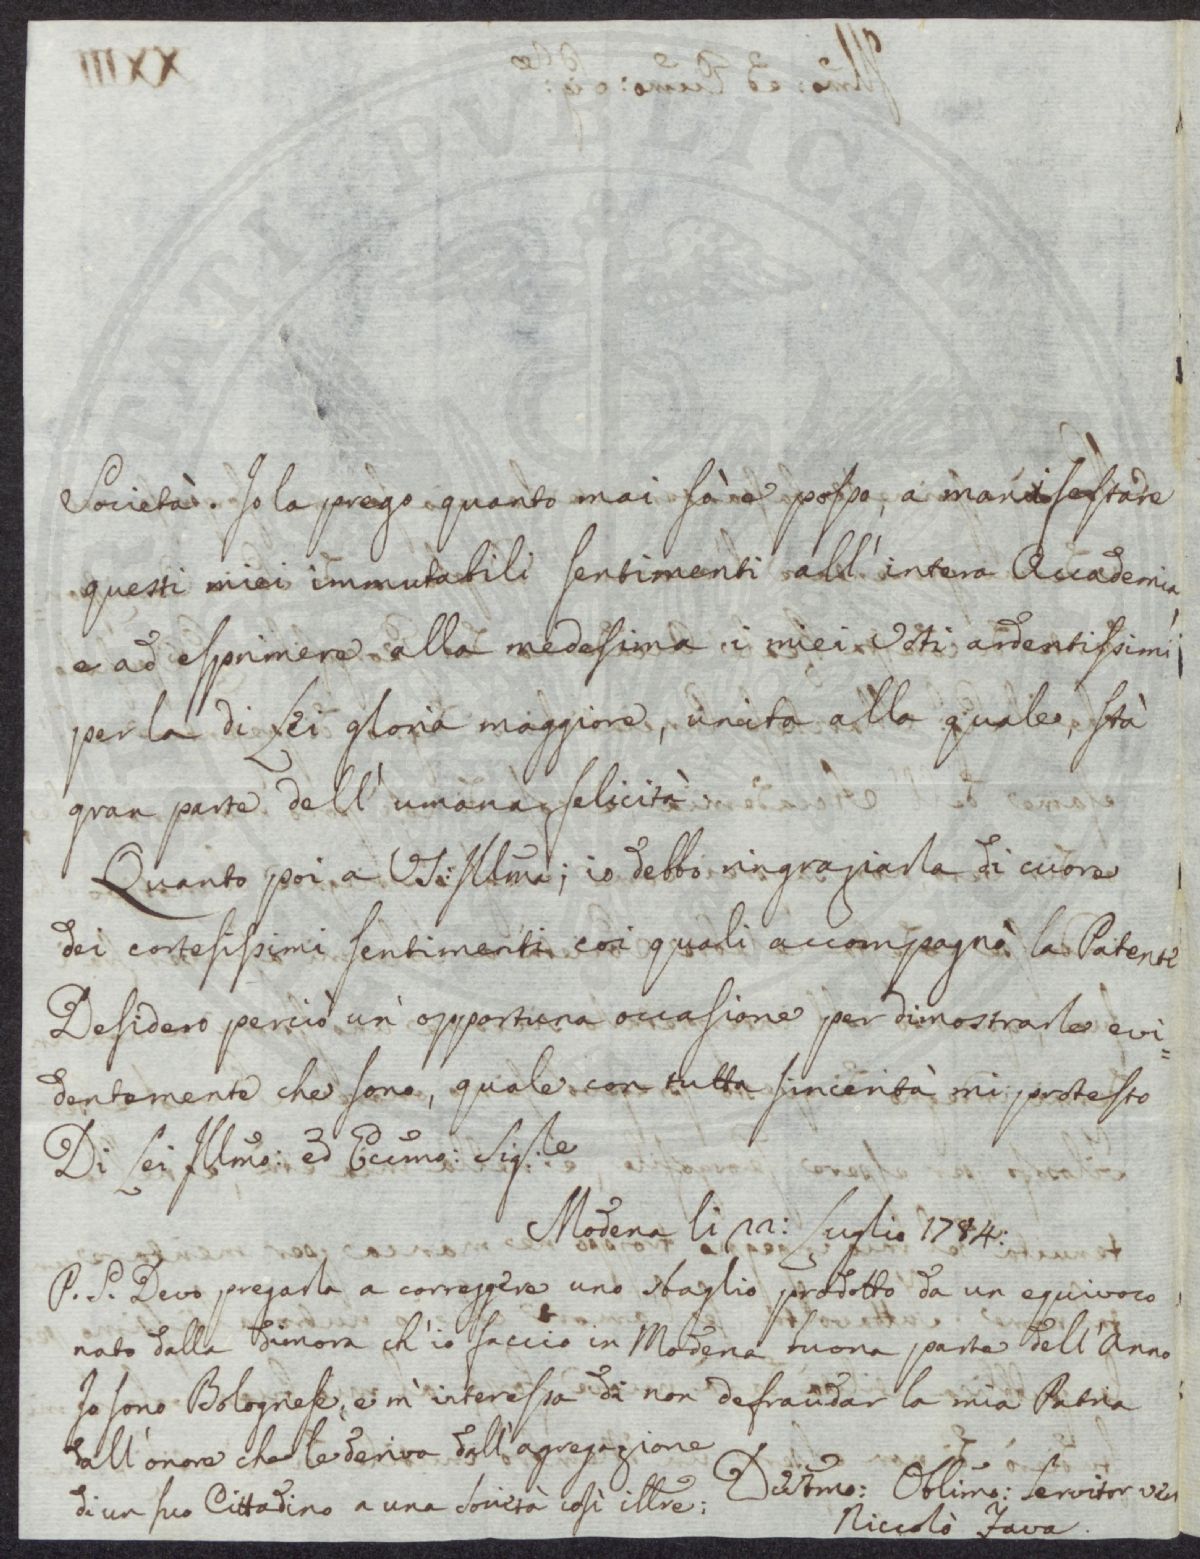 Società. Io la prego quanto mai sà e posso, a manifestare
questi miei immutabili sentimenti all' intera Accademia,
e ad esprimere alla medesima i miei voti ardentissimi
per la di Lei gloria maggiore, unita alla quale, stà
gran parte dell' umana felicità.
Quanto poi a VS: Illma; io debbo ringraziarla di cuore
dei cortesissimi sentimenti coi quali accompagnò la Patente
Desidero perciò un' opportuna occasione per dimostrarle evi=
dentemente che sono, quale con tutta sincerità mi protesto
Di Lei Illmo: ed Eccmo: Sig:re
Modena li 22: Luglio 1784:
P. S. Devo pregarla a correggere uno sbaglio prodotto da un equivoco
nato dalla dimora ch' io faccio in Modena buona parte dell' Anno
Io sono Bolognese, e m' interessa di non defraudar la mia Patria
dall' onore che le deriva dall' agregazione
di un suo Cittadino a una società così illre:
Devmo: Obblimo: Servitor vero
Niccolò Fava.